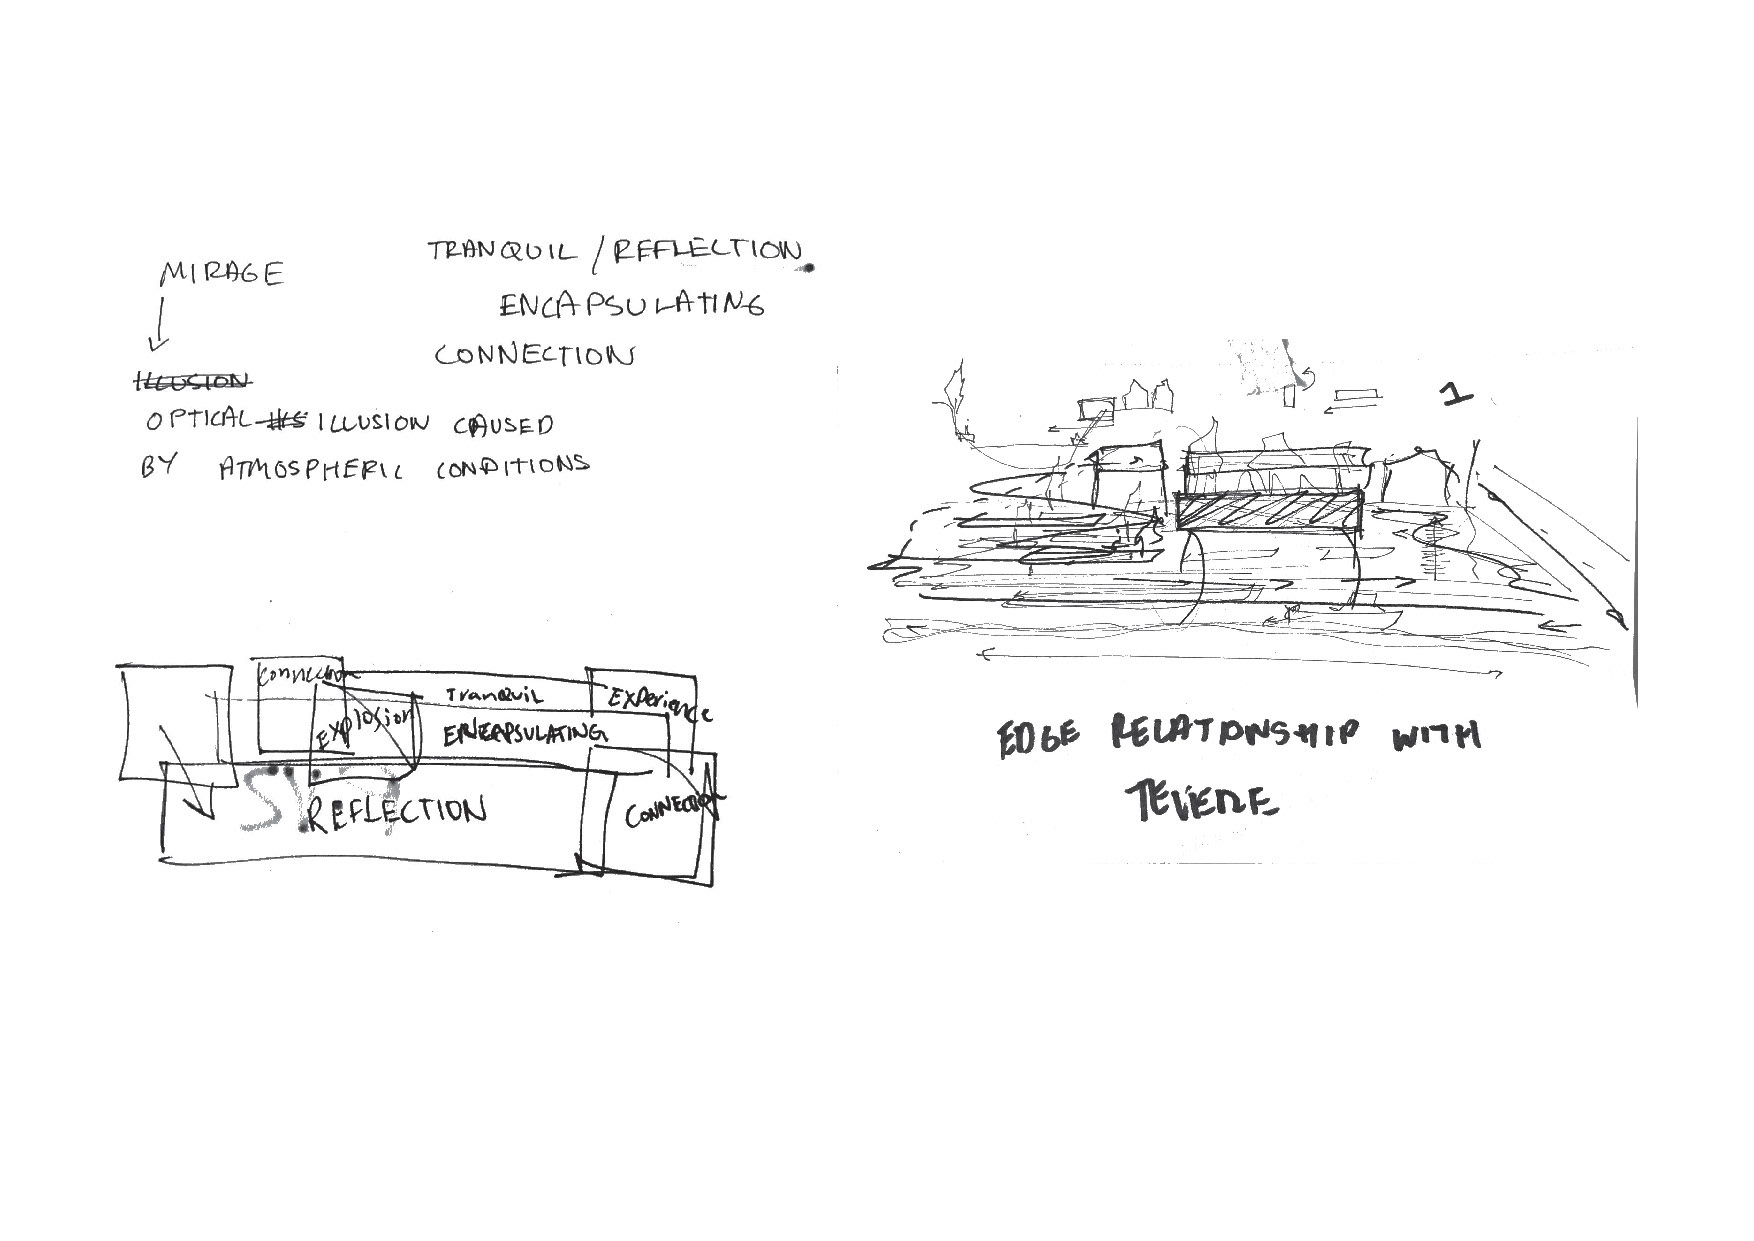 MIRAGE
ILLUSION
OPTICAL ILLUSION CAUSED
BY ATMOSPHERIC CONDITIONS
TRANQUIL / REFLECTION
ENCAPSULATING
CONNECTION
Connection
Explosion
Tranquil
Experience
ENCAPSULATING
REFLECTION
CONNECTION
1
EDGE RELATIONSHIP WITH
TEVERE